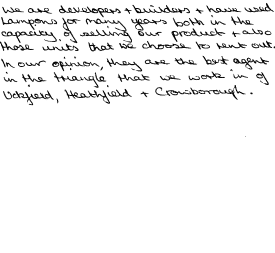 We are developers + builders + have used
Lampons for many years both in the
capacity of selling our product + also
those units that we choose to rent out.
In our opinion, they are the best agent
in the triangle that we work in of
Uckfield, Heathfield + Crowborough.